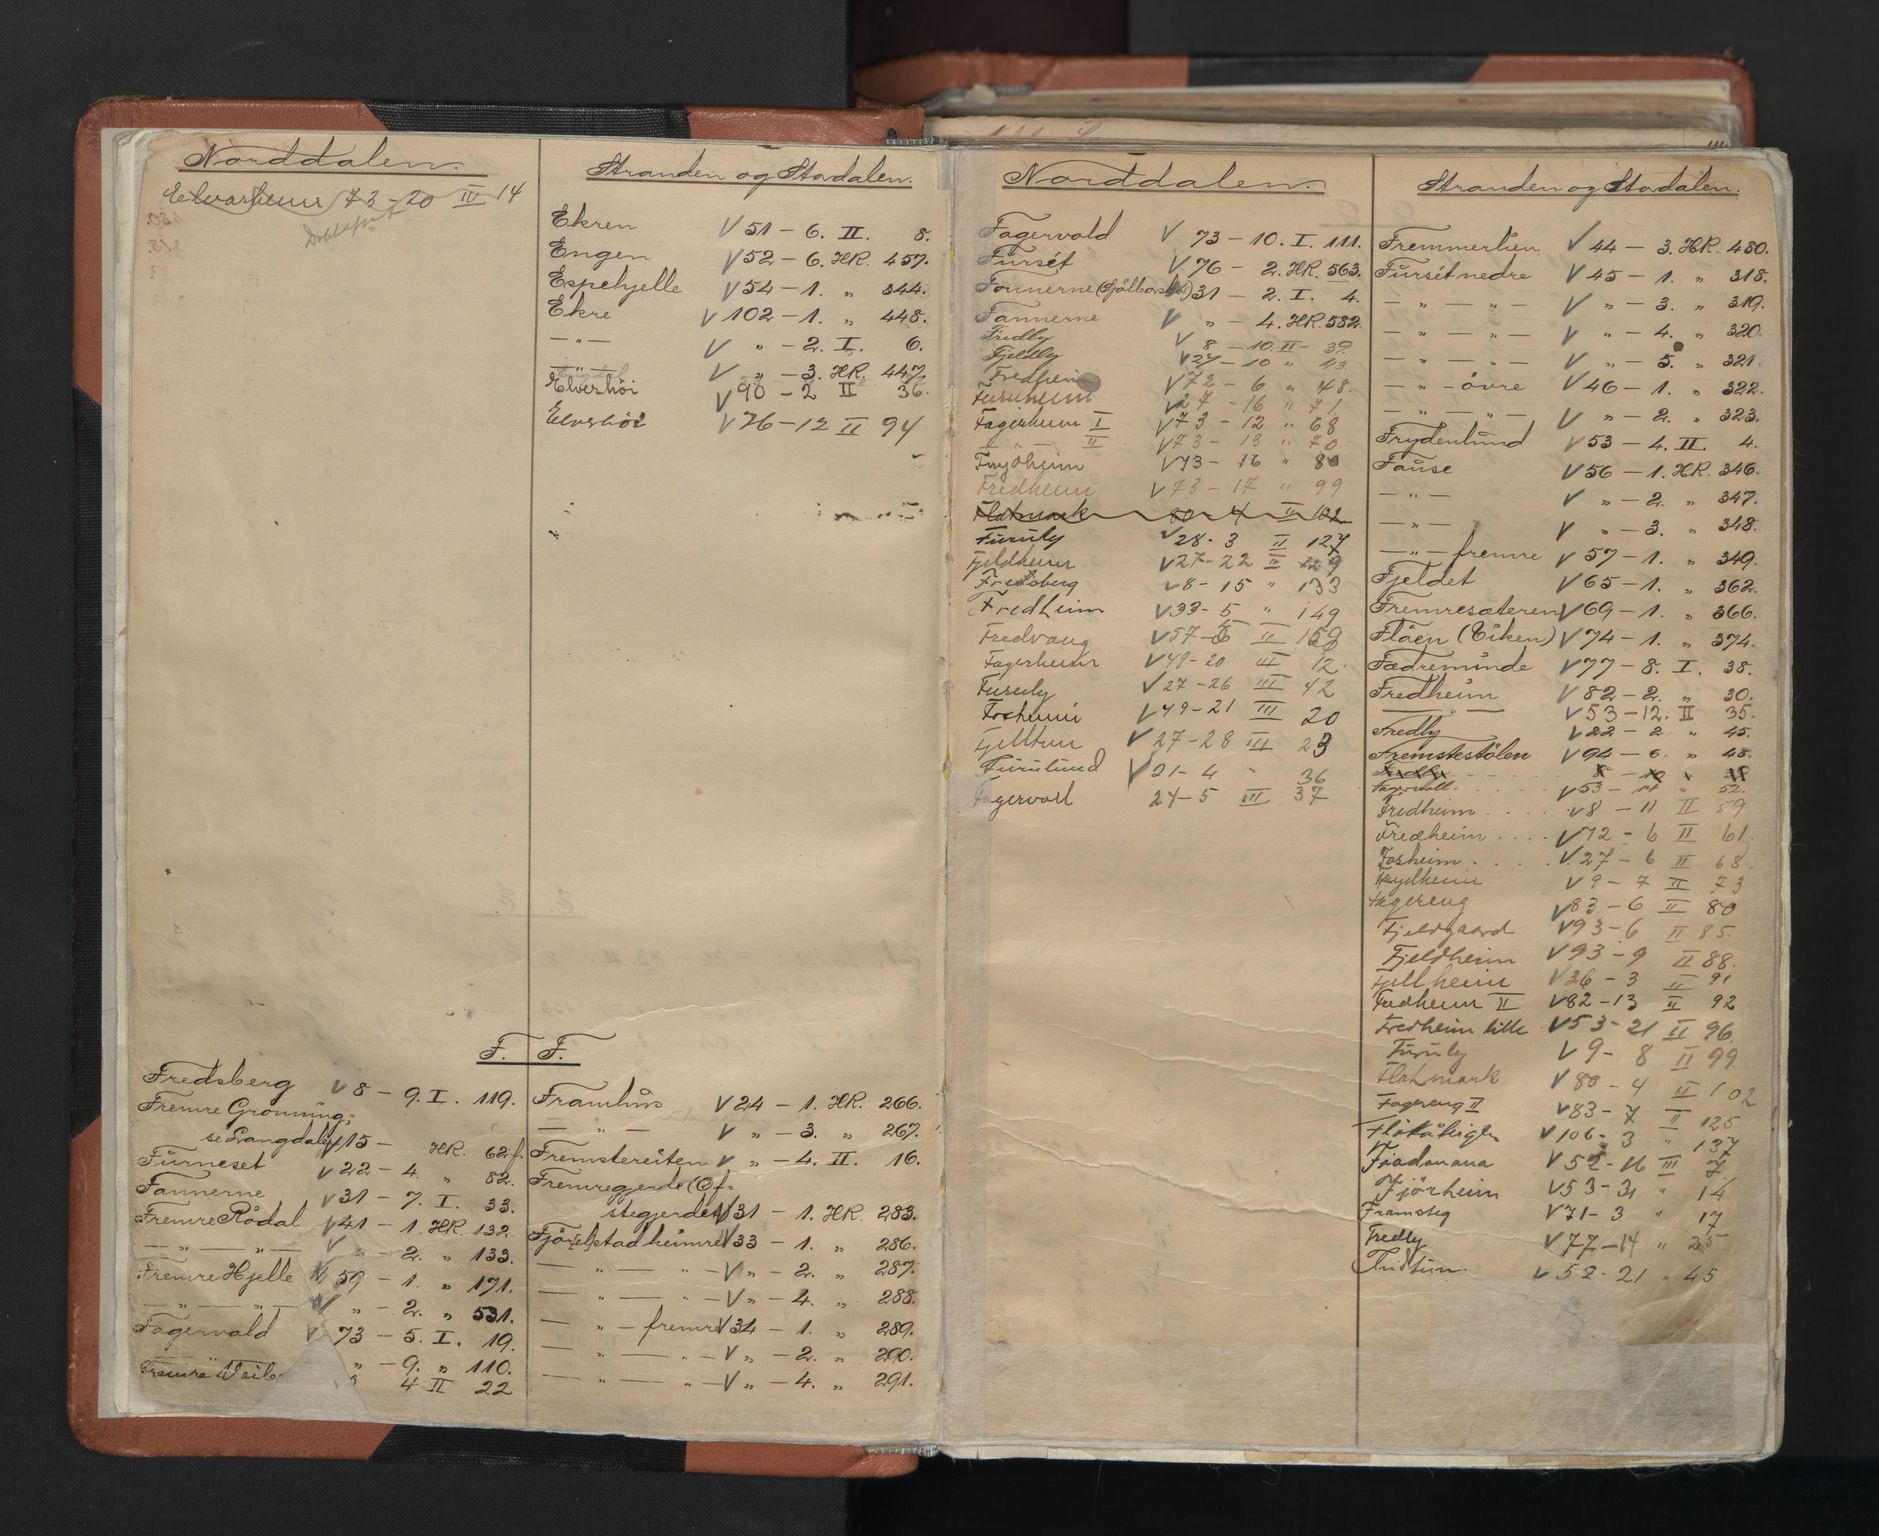 Norddalen.
Elvarheim 73 - 20 IV 14
Dobbeltført
Stranden og Stordalen.
Ekren V 51 - 6. II. 8.
Engen V 52 - 6. HR. 457.
Espehjelle V 54 - 1. " 344.
Ekre V 102 - 1. " 448.
— " — V " - 2. I. 6.
— " — V " - 3. HR. 447.
Elverhöi V 90 - 2 II 36.
Elverhöi V 76 - 12 II 94
F. F.
Fredsberg V 8 - 9. I. 119.
Fremre Grönning,
se Langdalen V 15 - HR. 62 f.
Furneset V 22 - 4. " 82.
Fannerne V 31 - 7. I. 33.
Fremre Rödal V 41 - 1. HR. 132.
— " — " — V " - 2. " 133.
Fremre Hjelle V 59 - 1. " 171.
— " — " — V " - 2. " 531.
Fagervold V 73 - 5. I. 19.
" - 9. " 110.
Fremre 4 II 22
Framhus V 24 - 1. HR. 266.
— " — V " - 3. " 267.
Fremstereiten V " - 4. II. 16.
Fremregjerde (Of=
stegjerdet) V 31 - 1. HR. 283.
Fjörelstad heimre V 33 - 1. " 286.
— " — " — V " - 2. " 287.
— " — " — V " - 4. " 288.
— " — fremre V 34 - 1. " 289.
— " — " — V " - 2. " 290.
— " — " — V " - 4. " 291.
Norddalen.
Fagervold V 73 - 10. I. 111.
Furset V 76 - 2. HR. 563.
Fonnerne 31 - 2. I. 4.
Fannerne V " - 4. HR. 582.
Fredly V 8 - 10 II - 39.
Fjeldly V 27 - 10 " 43
Fredheim V 72 - 6 " 48.
Furuheim V 27 - 16 " 71
Fagerheim I V 73 - 12 " 68
— II V 73 - 13 " 70
Frydheim V 73 - 16 " 80
Fredheim V 73 - 17 " 99
Flatmark 80 4 II 102
Furuly V 28 - 3 II 127
Fjeldheim V 27 - 22 II 129
Fredsberg V 8 - 15 " 133
Fredheim V 33 - 5 " 149
Fredvang V 57 - 5 II 159
Fagerheim V 49 - 20 III 12.
Furuly V 27 - 26 III 42
Fosheim V 49 - 21 III 20
Fjelltun V 27 - 28 III 23
Furulund V 21 - 4 " 36
Fagervoll 24 - 5 III 37
Stranden og Stordalen.
Fremmerlien V 44 - 3. HR. 480.
Furset nedre V 45 - 1. " 318.
— " — " — V " - 3. " 319.
— " — " — V " - 4. " 320.
— " — " — V " - 5. " 321.
— " — övre V 46 - 1. " 322.
— " — " — V " - 2. " 323.
Frydenlund V 53 - 4. II. 4.
Fause V 56 - 1. HR. 346.
— " — V " - 2. " 347.
— " — V " - 3. " 348.
— " — fremre V 57 - 1. " 349.
Fjeldet V 65 - 1. " 362.
Fremresæteren V 69 - 1. " 366.
Flåen (Viken) V 74 - 1. " 374.
Fædreminde V 77 - 8. I. 38.
Fredheim V 82 - 2. " 30.
— " — V 53 - 12. II 35.
Fredly V 22 - 2. " 45.
Fremstestölen V 94 - 6 " 48.
Fredly 8 - 10 " 39
Fagervoll V 53 - 14 " 52.
Fredheim V 8 - 11 II 59
Fredheim V 72 - 6 II 61.
Fosheim V. 27 - 6 II 68
Frydheim V 9 - 7 II 73
Fagereng V 83 - 6 II 80
Fjeldgaard V 93 - 6 II 85.
Fjeldheim V 93 - 9 II 88.
Fjellheim V 36 - 3 II 91
Fredheim II V 82 - 13 II 92
Fredheim lille V 53 - 21 II 96
Furuly V 9 - 8 II 99
Flatmark V 80 - 4 II 102
Fagereng II V 83 - 7 II 125
V 106 - 3 " 137
V 52 - 16 III 7
Fjörheim V 53 - 31 " 14
Framsteg V 71 - 3 " 17
Fredly V 77 - 14 " 25
Fredtun V 52 - 21 " 45